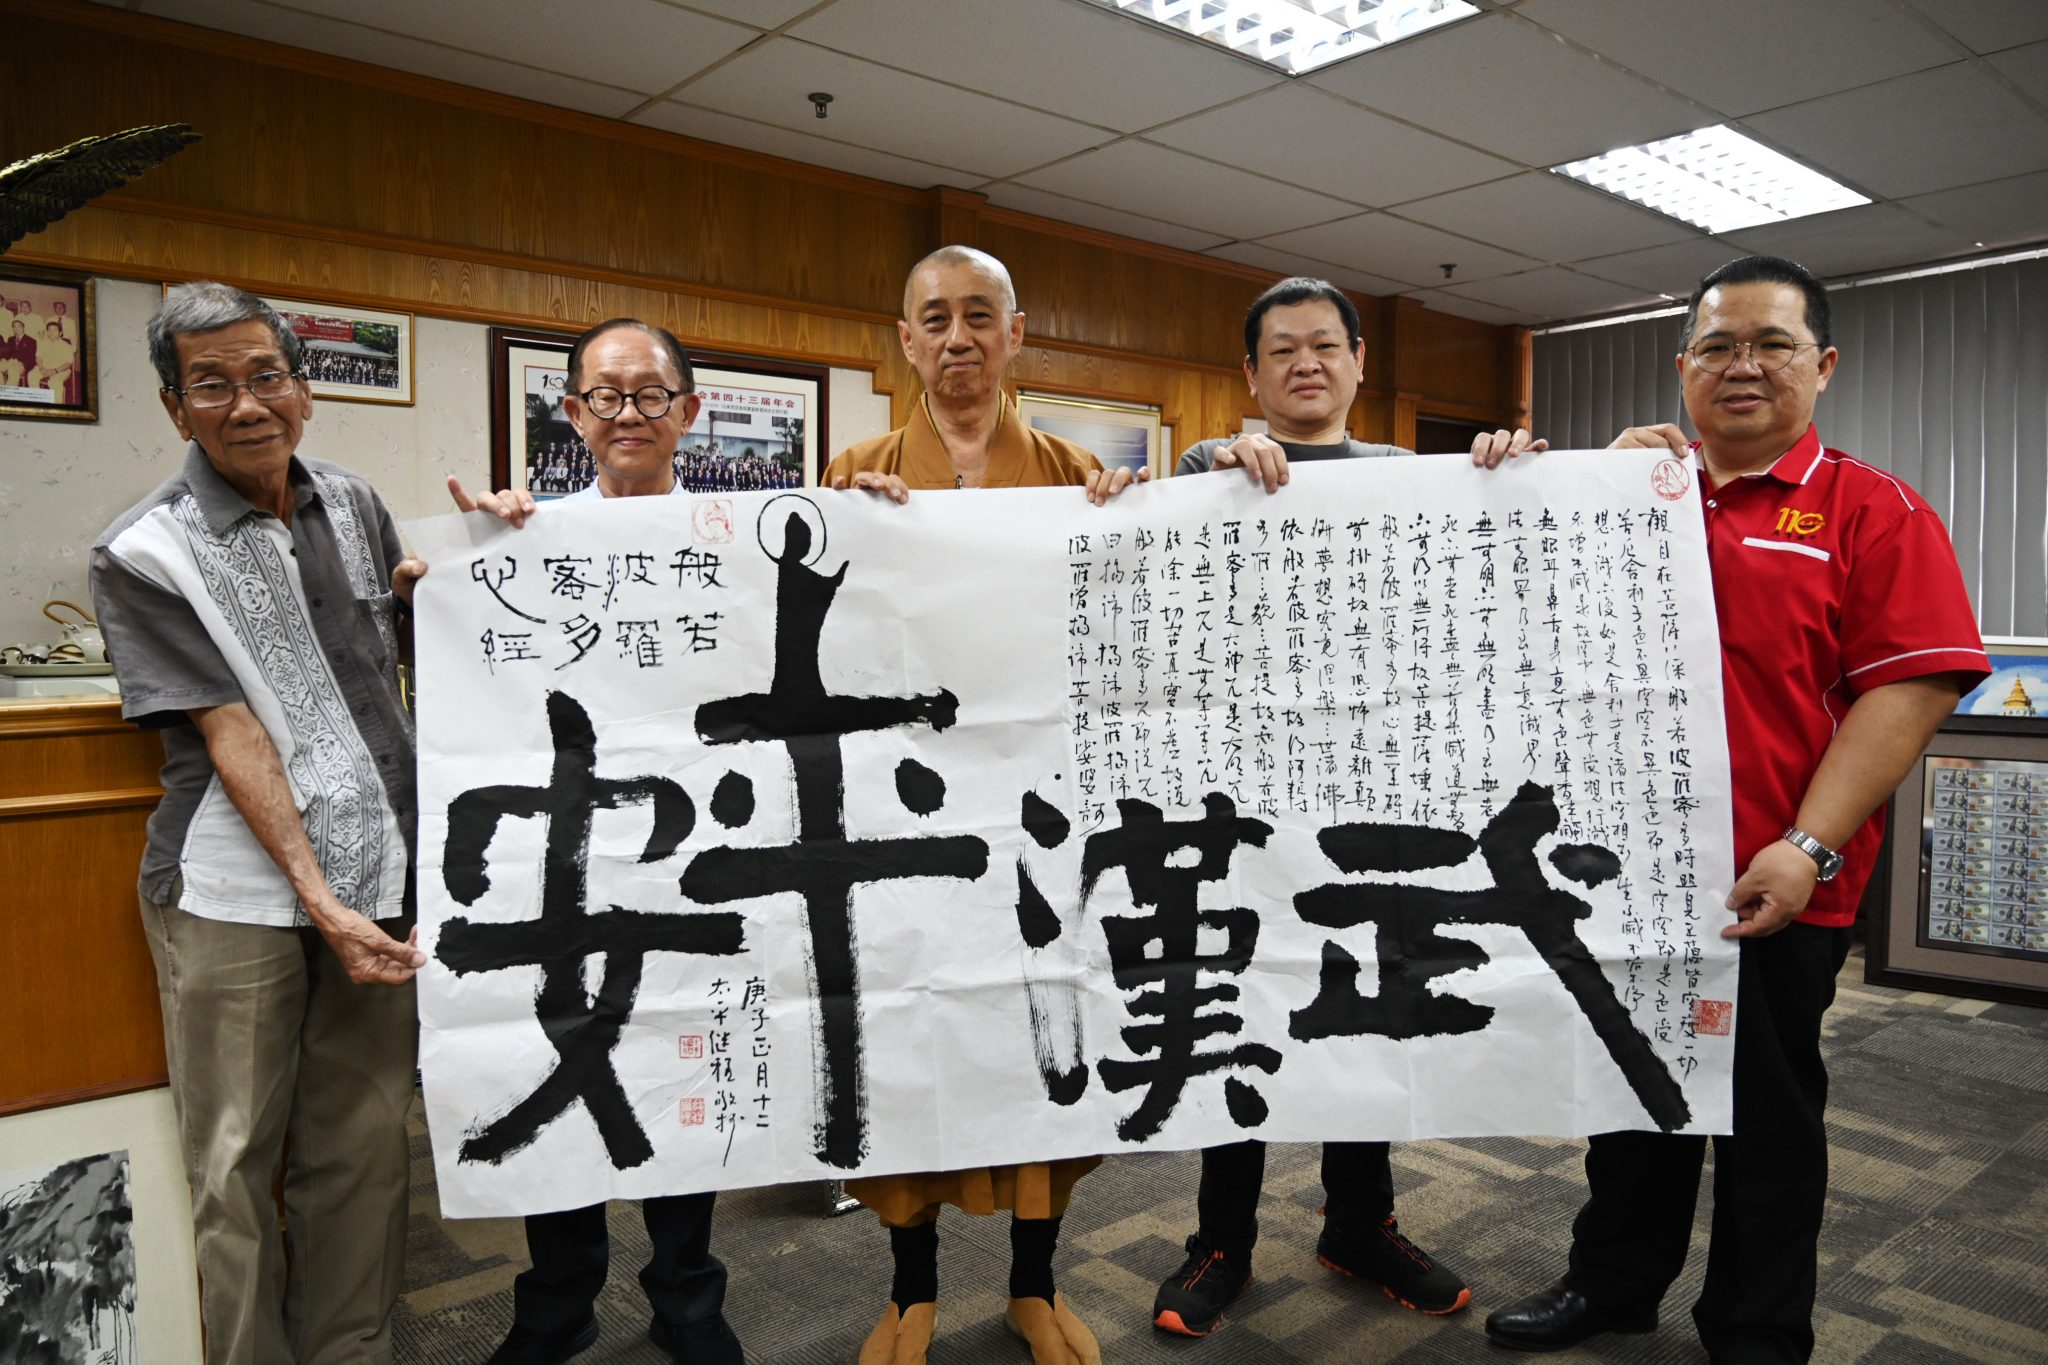 般若
波羅
蜜多
心經
觀自在菩薩行深般若波羅蜜多時照見五蘊皆空度一切
苦厄舍利子色不異空空不異色色即是空空即是色受
想行識亦復如是舍利子是諸法空相不生不滅不垢不淨
不增不減是故空中無色無受想行識
無眼耳鼻舌身意無色聲香味觸
法無眼界乃至無意識界
無無明亦無無明盡乃至無老
死亦無老死盡無苦集滅道無智
亦無得以無所得故菩提薩埵依
般若波羅蜜多故心無罣碍
無掛碍故無有恐怖遠離顛
倒夢想究竟涅槃三世諸佛
依般若波羅蜜多故得阿耨
多羅三藐三菩提故知般若波
羅蜜多是大神咒是大明咒
是無上咒是無等等咒
能除一切苦真實不虛故說
般若波羅蜜多咒即說咒
曰揭諦揭諦波羅揭諦
波羅僧揭諦菩提娑婆訶
武漢平安
庚子正月十二
太平繼程敬抄
会第四十三届年会
110